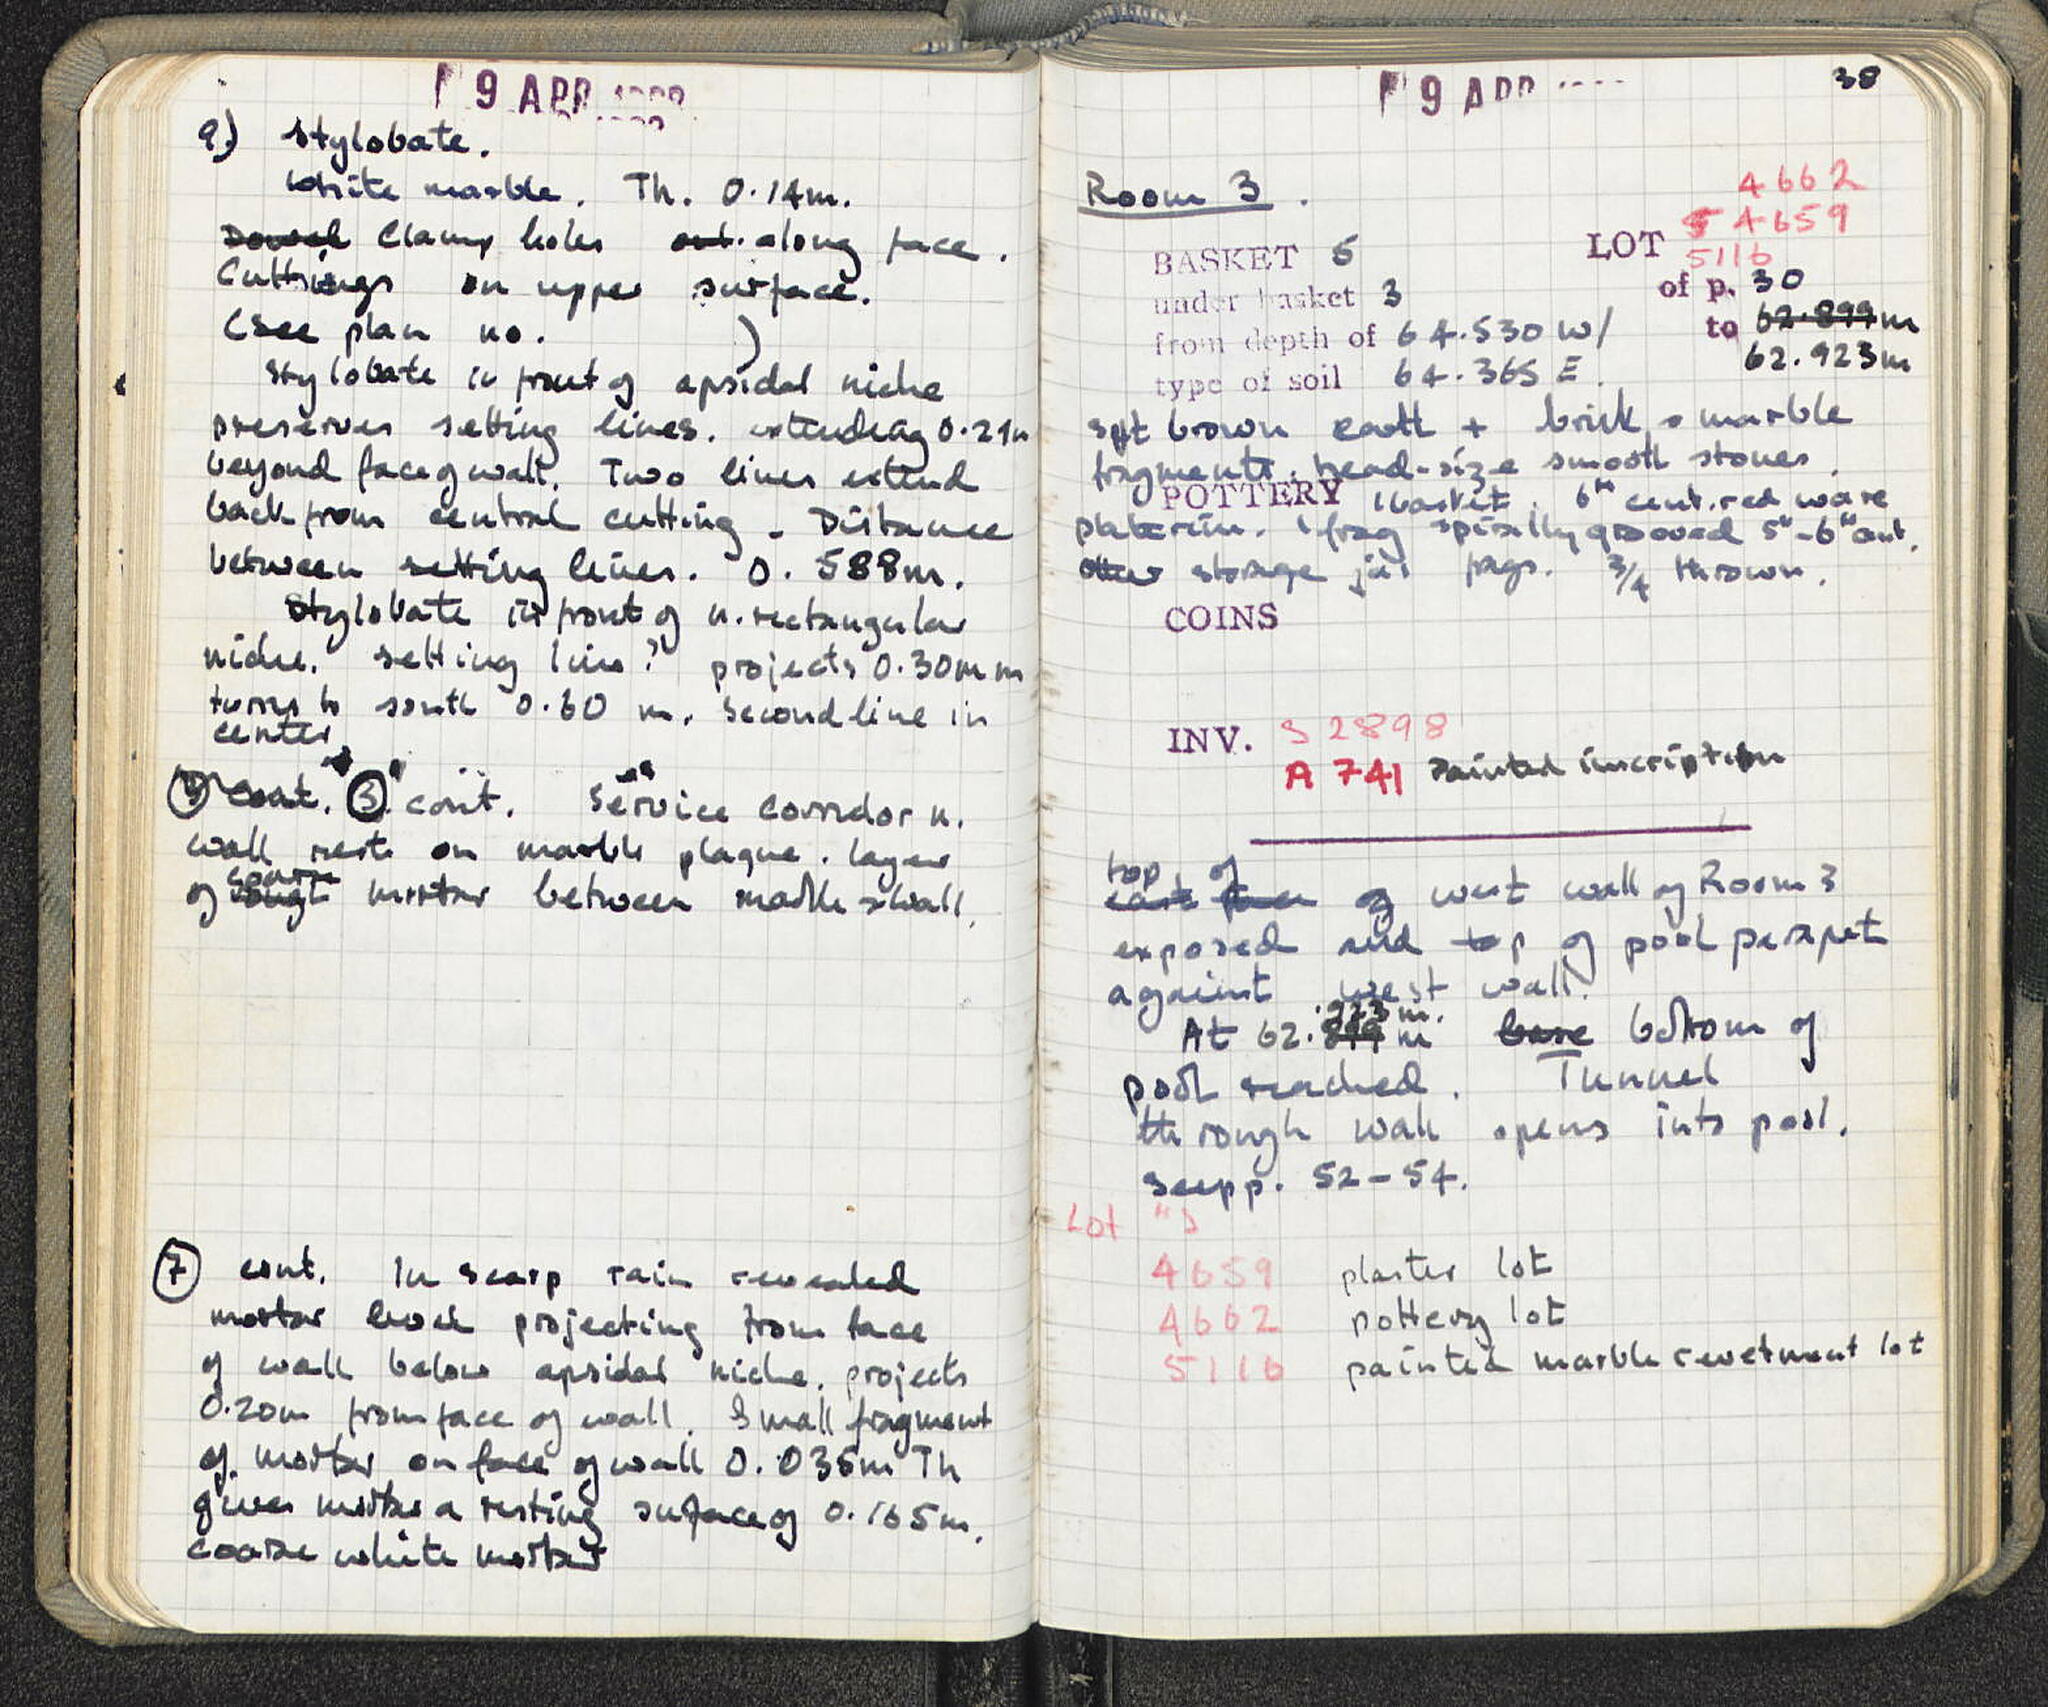 9 APR
9) Stylobate.
White marble. Th. 0.14m.
Dowel Clamp holes out. along face.
Cuttings on upper surface.
(see plan no. )
Stylobate in front of apsidal niche
preserves setting lines. extending 0.21m
beyond face of wall. Two lines extend
back from central cutting. Distance
between setting lines. 0.588m.
Stylobate in front of n. rectangular
niche. setting line? projects 0.30m
turns to south 0.60 m. Second line in
center
cont. 3 cont. Service corridor n.
wall rests on marble plaque. layer
of rough coarse mortar between marble + wall.
7 cont. In scarp rain revealed
mortar level projecting from face
of wall below apsidal niche. projects
0.20m from face of wall. Small fragment
of mortar on face of wall 0.035m Th
gives mortar a resting surface of 0.165m.
coarse white mortar
9 APR
38
Room 3.
BASKET 5
LOT 4662
4659
5116
under basket 3 of p. 30
from depth of 64.530 W/ to 62.899m
type of soil 64.365 E. 62.923m
soft brown earth + brick + marble
fragments. head-size smooth stones.
POTTERY 1 basket. 6th cent. red ware
plate rim. 1 frag spirally grooved 5th-6th cent.
other storage jar frags. 3/4 thrown.
COINS
INV. S 2898
A 741 Painted inscription
top of
east face of west wall of Room 3
exposed and top of pool parapet
against west wall.
.923m.
At 62.899 m base bottom of
pool reached. Tunnel
through wall opens into pool.
See pp. 52-54.
Lot "s
4659 plaster lot
4662 pottery lot
5116 painted marble revetment lot